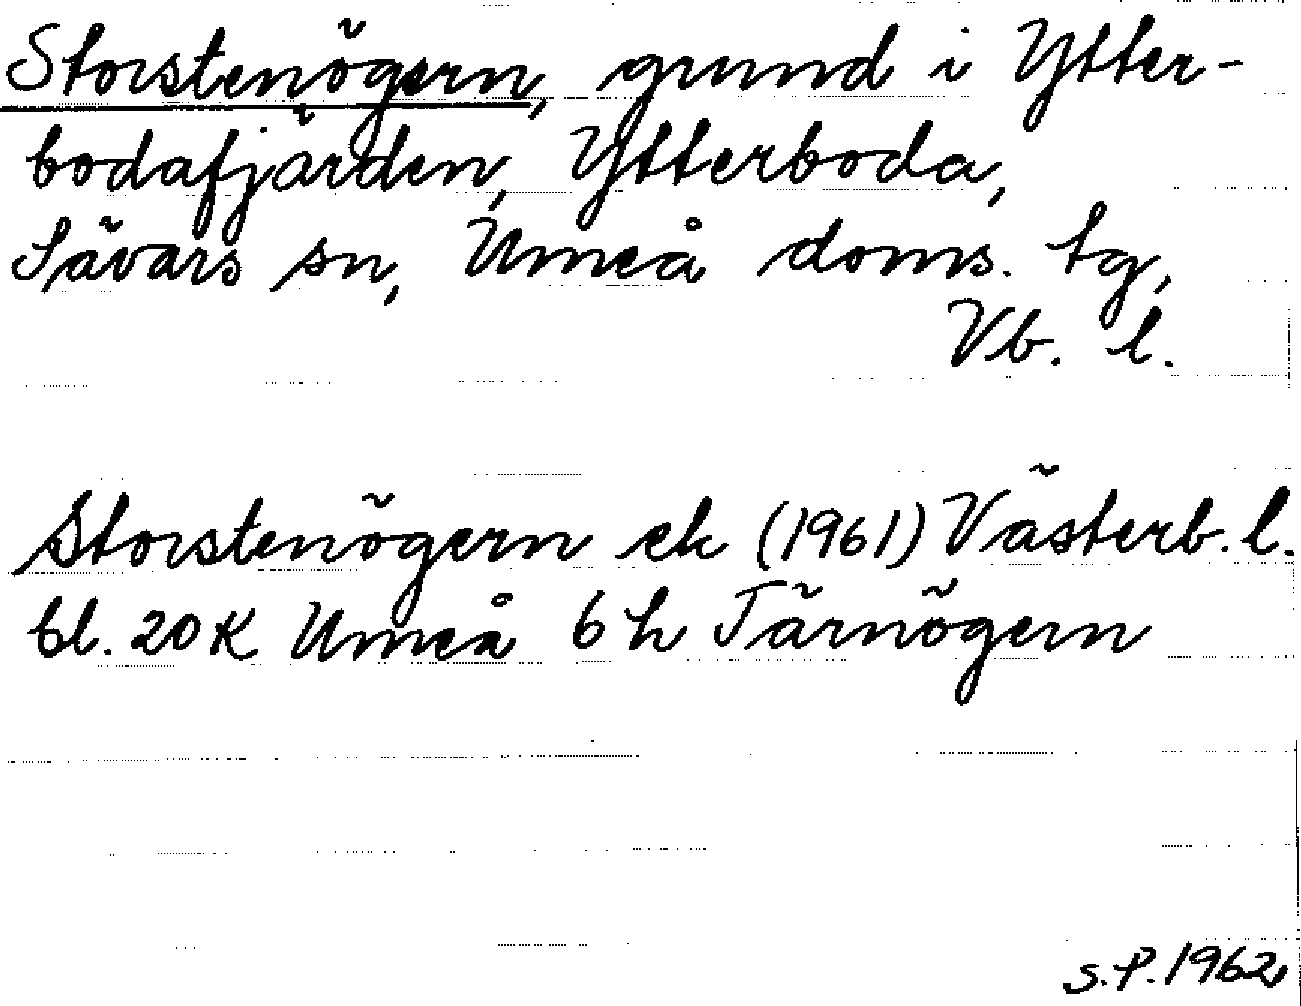 Storstenögern, grund i Ytter-
bodafjärden, Ytterboda,
Sävars sn, Umeå doms. tg,
Vb. l.
Storstenögern ek (1961) Västerb. l.
bl. 20 K Umeå 6 h Tärnögern
S.P. 1962